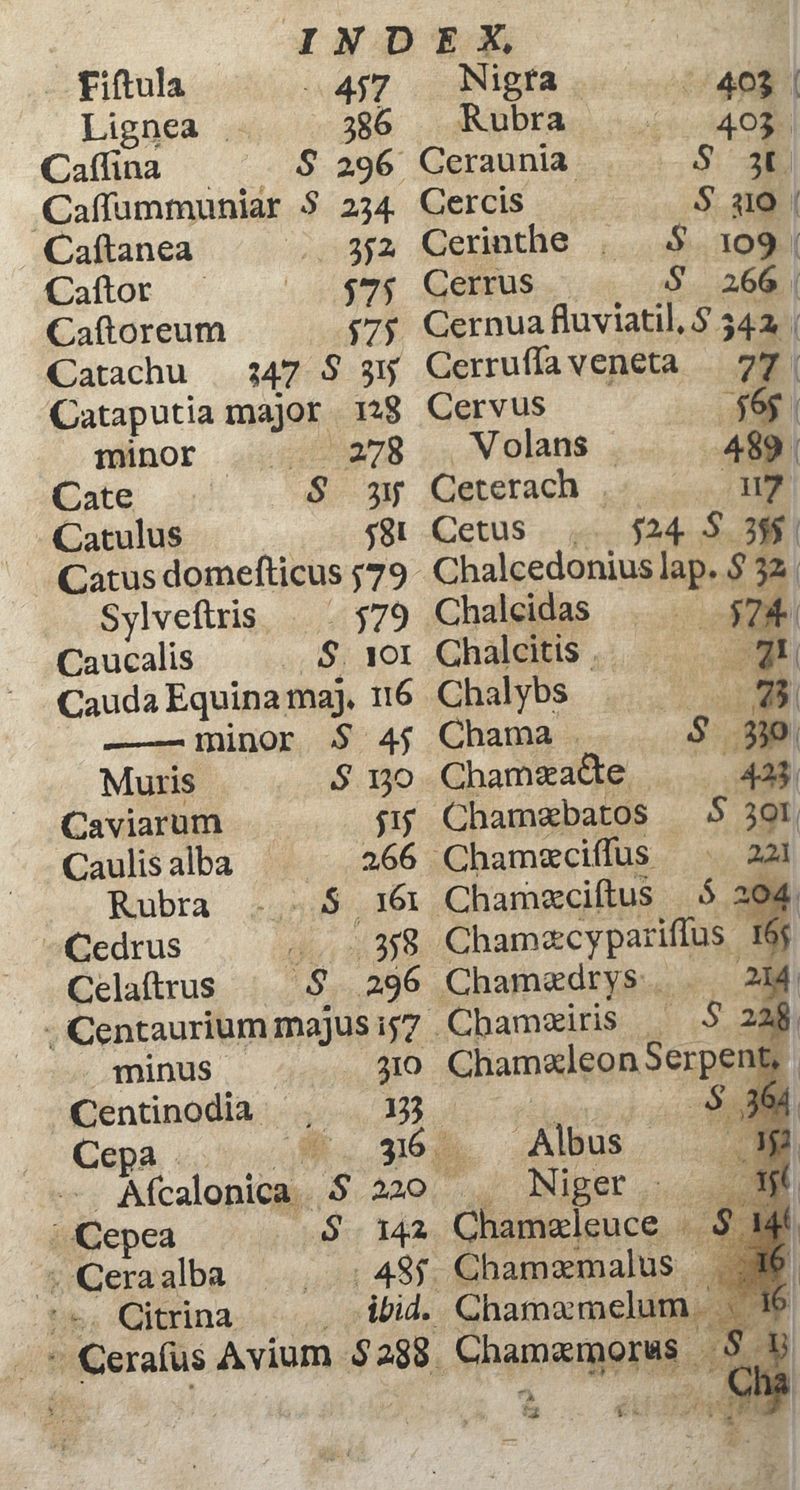 INDEX,
Fiſtula 457
Lignea 386
Caſſina S 296
Caſſummuniar S 234
Caſtanea 352
Caſtor 575
Caſtoreum 575
Catachu 347 S 315
Cataputia major 128
minor 278
Cate S 315
Catulus 581
Catus domeſticus 579
Sylveſtris 579
Caucalis S 101
Cauda Equina maj. 116
—— minor S 45
Muris S 130
Caviarum 515
Caulis alba 266
Rubra S 161
Cedrus 358
Celaſtrus S 296
Centaurium majus 157
minus 310
Centinodia 133
Cepa 316
Aſcalonica S 220
Cepea S 142
Cera alba 485
Citrina ibid.
Ceraſus Avium S 288
Nigra 403
Rubra 403
Ceraunia S 31
Cercis S 310
Cerinthe S 109
Cerrus S 266
Cernua fluviatil. S 342
Cerruſſa veneta 77
Cervus 565
Volans 489
Ceterach 117
Cetus 524 S 355
Chalcedonius lap. S 32
Chalcidas 574
Chalcitis 71
Chalybs 73
Chama S 330
Chamæacte 423
Chamæbatos S 301
Chamæciſſus 221
Chamæciſtus S 204
Chamæcypariſſus 165
Chamædrys 214
Chamæiris S 228
Chamæleon Serpent,
S 364
Albus 152
Niger
Chamæleuce S
Chamæmalus 16
Chamæmelum 16
Chamæmorus S
Cha